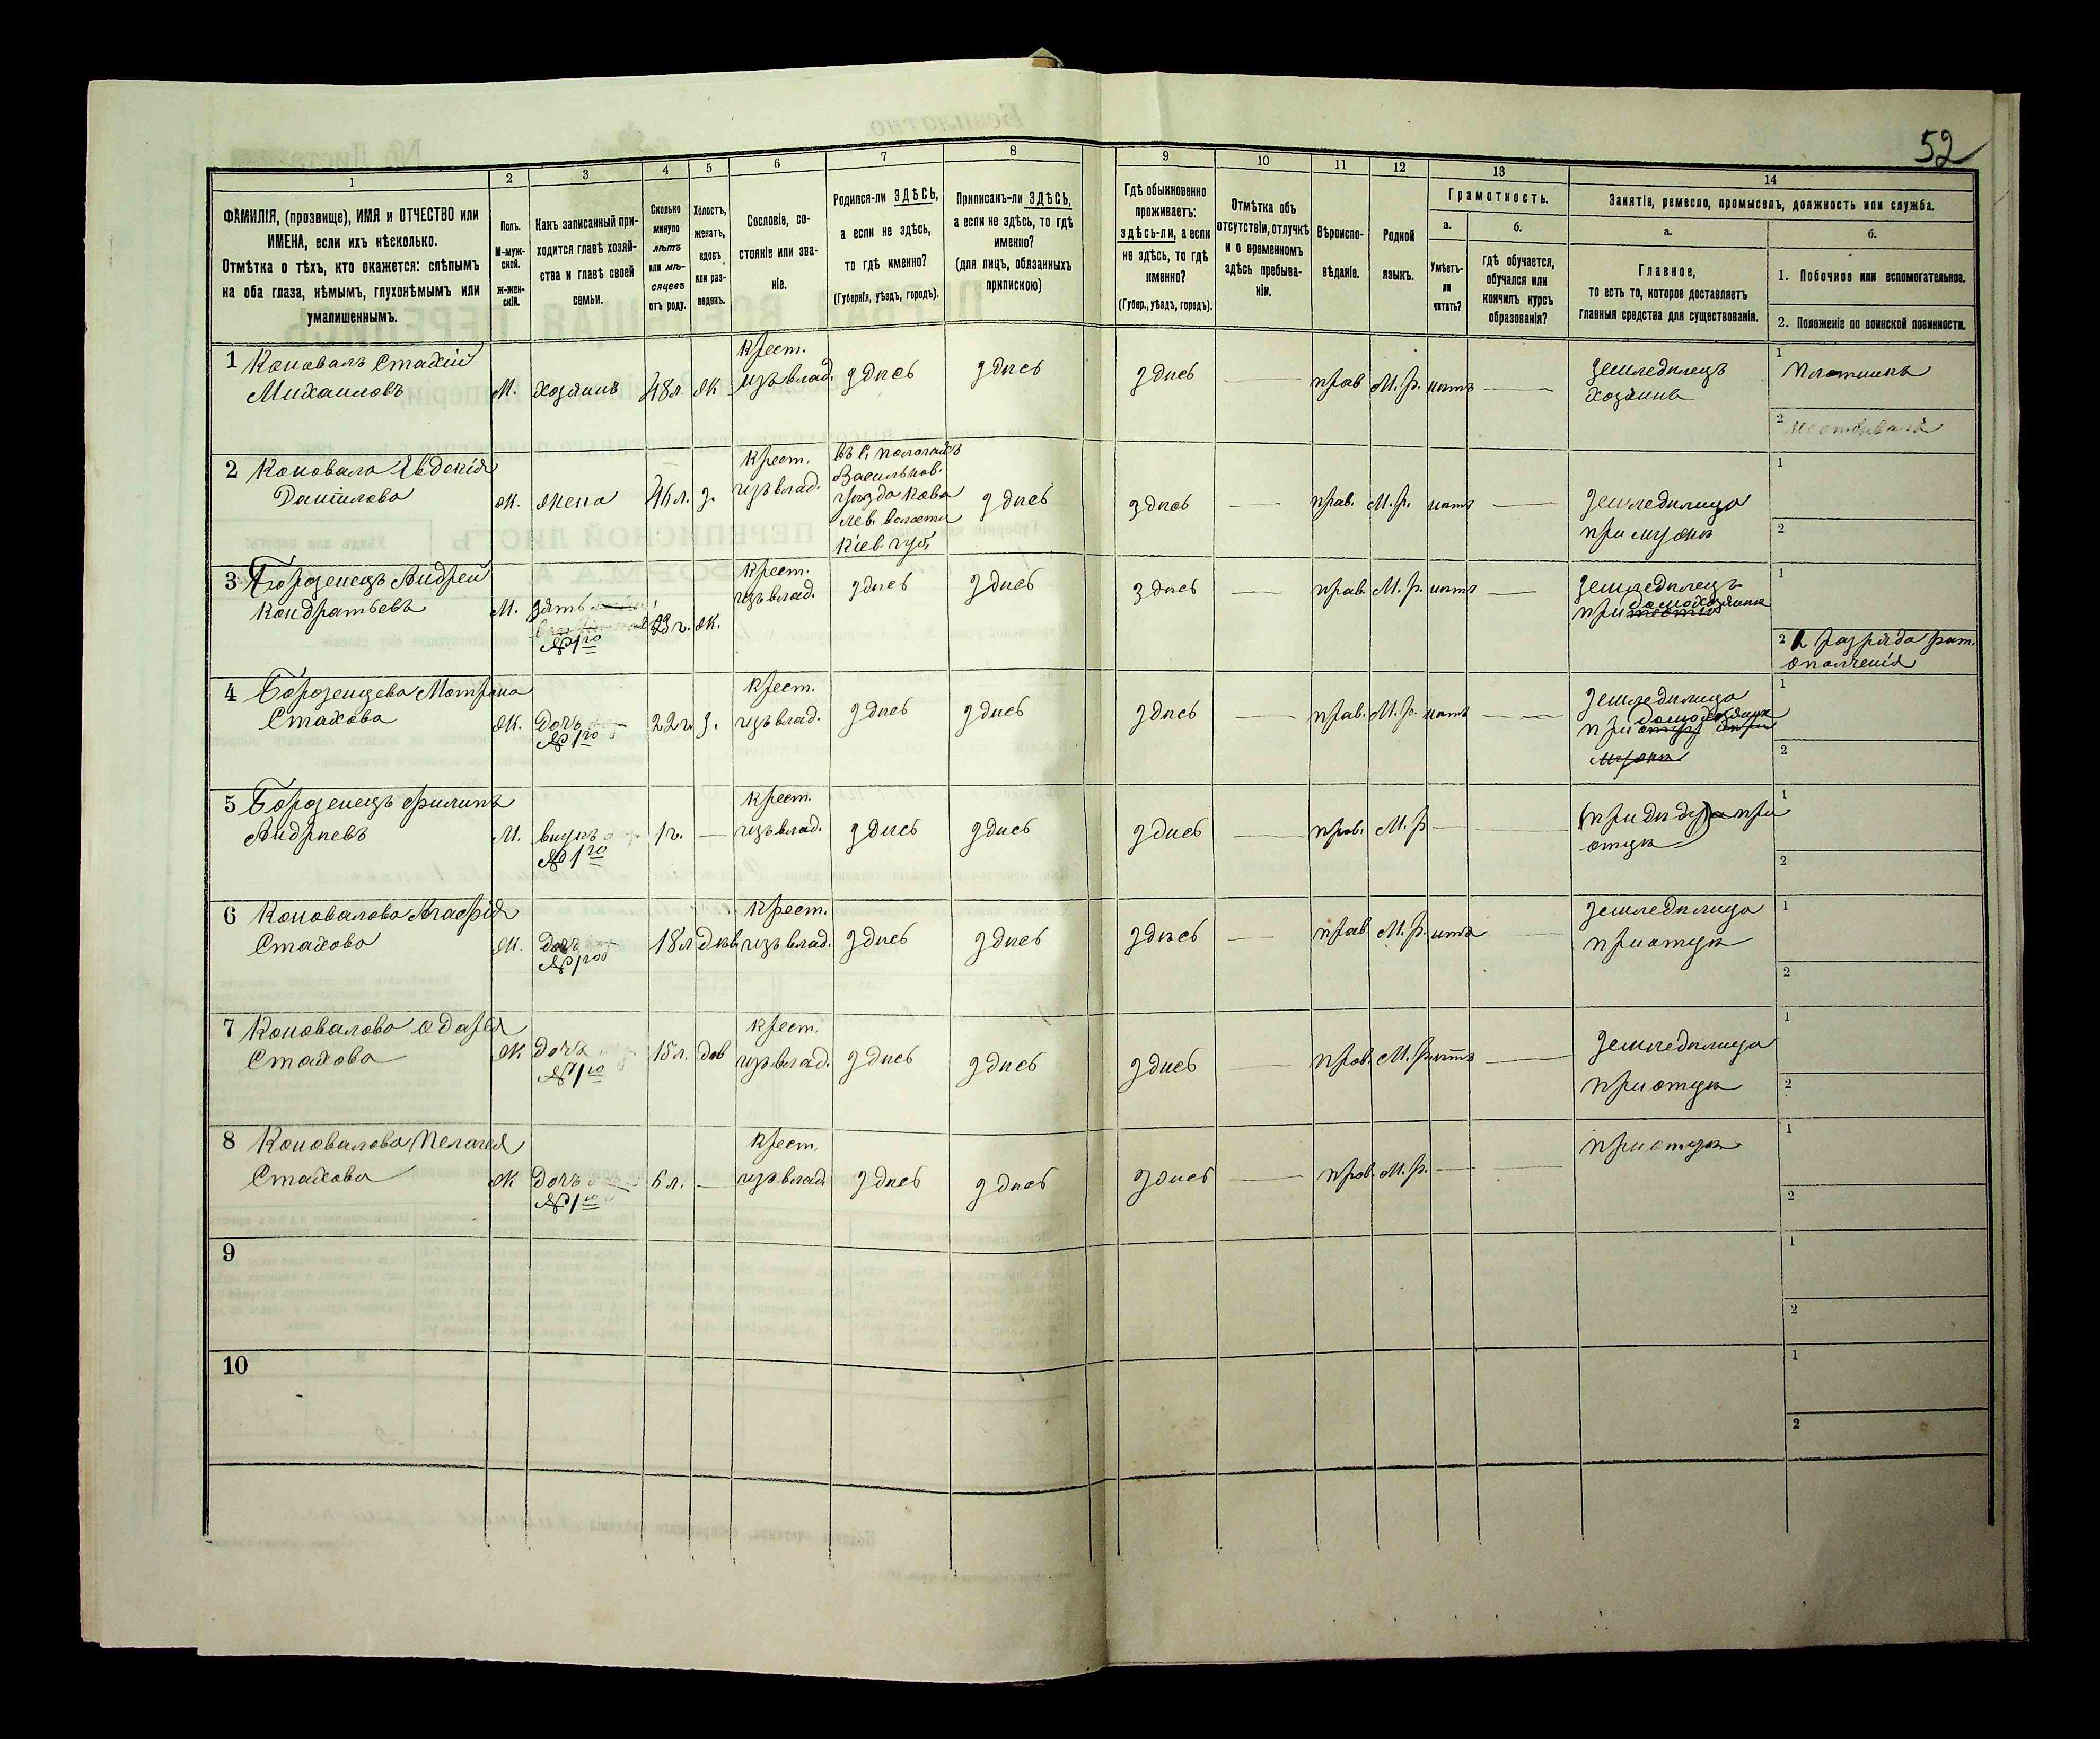 52
1
2
3
4
5
6
7
8
9
10
11
12
13
14
ФАМИЛІЯ, (прозвище), ИМЯ и ОТЧЕСТВО или
ИМЕНА, если ихъ нѣсколько.
Отмѣтка о тѣхъ, кто окажется: слѣпымъ
на оба глаза, нѣмымъ, глухонѣмымъ или
умалишеннымъ.
Полъ.
М-муж-
ской.
Ж-жен-
скій.
Какъ записанный при-
ходится главѣ хозяй-
ства и главѣ своей
семьи.
Сколько
минуло
лѣтъ
или мѣ-
сяцевъ
отъ роду.
Холостъ,
женатъ,
вдовъ
или раз-
веденъ.
Сословіе, со-
стояніе или зва-
ніе.
Родился-ли ЗДѢСЬ,
а если не здѣсь,
то гдѣ именно?
(Губернія, уѣздъ, городъ).
Приписанъ-ли ЗДѢСЬ,
а если не здѣсь, то гдѣ
именно?
(для лицъ, обязанныхъ
припискою)
Гдѣ обыкновенно
проживаетъ:
здѣсь-ли, а если
не здѣсь, то гдѣ
именно?
(Губер., уѣздъ, городъ).
Отмѣтка объ
отсутствіи, отлучкѣ
и о временномъ
здѣсь пребыва-
ніи.
Вѣроиспо-
вѣданіе.
Родной
языкъ.
Грамотность.
а.
Умѣетъ-
ли
читать?
б.
Гдѣ обучается,
обучался или
кончилъ курсъ
образованія?
Занятіе, ремесло, промыселъ, должность или служба.
а.
Главное,
то есть то, которое доставляетъ
главныя средства для существованія.
б.
1. Побочное или вспомогательное.
2. Положеніе по воинской повинности.
1 Коновалъ Стахій
Михаиловъ
М. хозяинъ 48 л. ж
Крест.
изъ влад. здѣсь здѣсь здѣсь — прав М. р. нѣтъ —
земледѣлецъ
хозяинъ
1 Плотникъ
2
2 Коновалова Евдокія
Даниилова
ж. жена 46 л. з.
Крест.
изъ влад.
въ с.
Васильков.
уѣзда Кова
лев. волости
Кіев. губ.
здѣсь здѣсь — прав. М. р. нѣтъ —
земледѣлица
при мужѣ
1
2
3 Борозенецъ Андрей
Кондратьевъ
М. зять
№ 1го
23 г. ж.
Крест.
изъ влад. здѣсь здѣсь здѣсь — прав. М. р. нѣтъ —
земледѣлецъ
при домохозяинѣ
1
2 разряда рат.
ополченія
4 Борозенцева Мотрона
Стахова
ж. дочь
№ 1го
22 г. з.
Крест.
изъ влад. здѣсь здѣсь здѣсь — прав. М. р. нѣтъ —
земледѣлица
при домохозяинѣ
мужѣ
1
2
5 Борозенецъ Филипъ
Андреевъ
М. внукъ
№ 1го
1 г. —
Крест.
изъ влад. здѣсь здѣсь здѣсь — прав. М. р — —
(при дѣду) при
отцѣ
1
2
6 Коновалова Агафія
Стахова
ж. дочь
№ 1го
18 л дѣв
Крест.
изъ влад. здѣсь здѣсь здѣсь — прав М. р. нѣтъ —
земледѣлица
при отцѣ
1
2
7 Коновалова Одарья
Стахова
ж дочь
№ 1го
15 л. дѣв
Крест.
изъ влад. здѣсь здѣсь здѣсь — прав. М. р. нѣтъ —
земледѣлица
при отцѣ
1
2
8 Коновалова Пелагея
Стахова
ж дочь
№ 1го
6 л. —
Крест.
изъ влад. здѣсь здѣсь здѣсь — прав. М. р. — —
при отцѣ
1
2
9
1
2
10
1
2